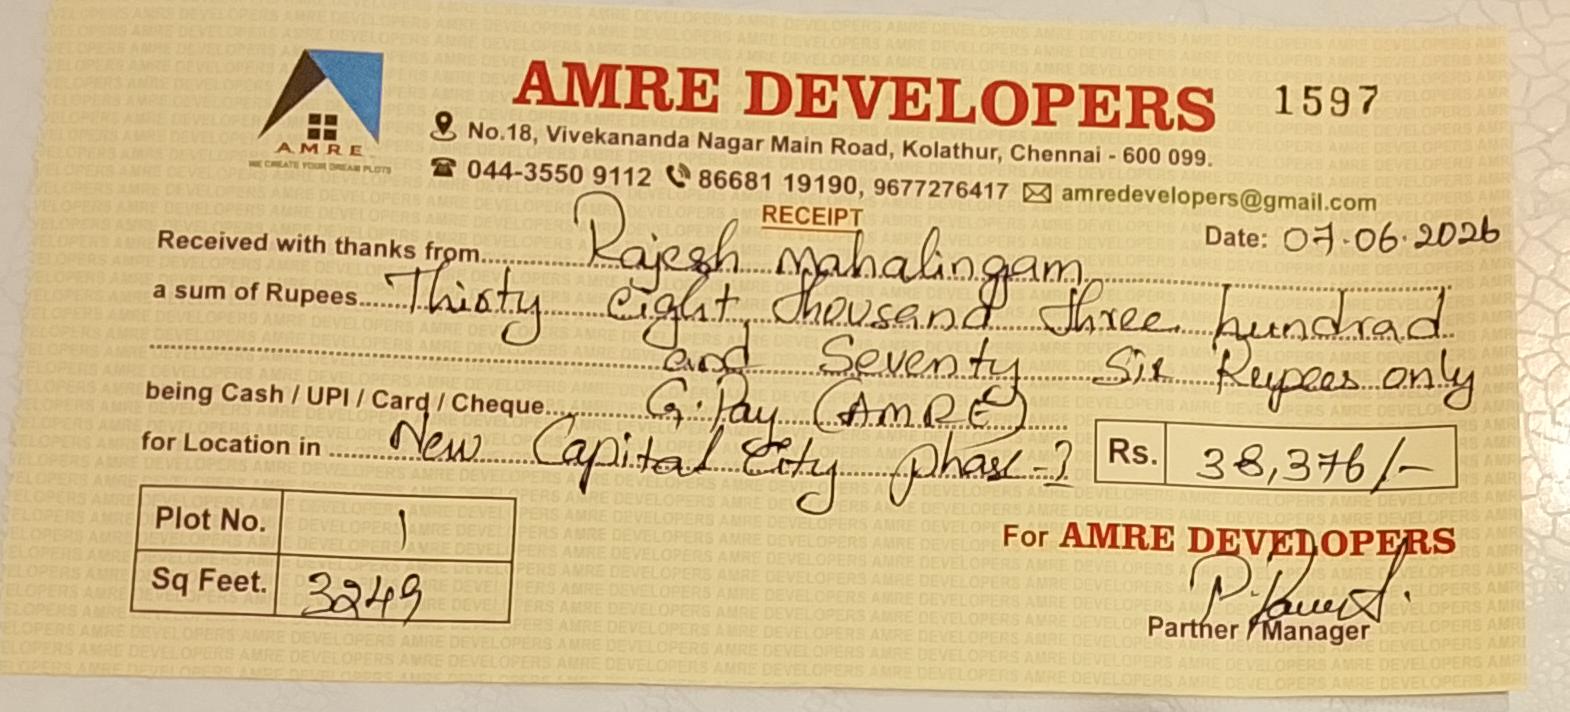 AMRE DEVELOPERS 1597
AMRE
WE CREATE YOUR DREAM PLOTS
No.18, Vivekananda Nagar Main Road, Kolathur, Chennai - 600 099.
044-3550 9112 86681 19190, 9677276417 amredevelopers@gmail.com
RECEIPT
Date: 07.06.2026
Received with thanks from Rajesh Mahalingam
a sum of Rupees Thirty eight thousand three hundrad
and Seventy Six Rupees only
being Cash / UPI / Card / Cheque G.Pay (AMRE)
for Location in New Capital City phase-
Rs. 38,376/-
Plot No. 1
Sq Feet. 3249
For AMRE DEVELOPERS
Partner / Manager